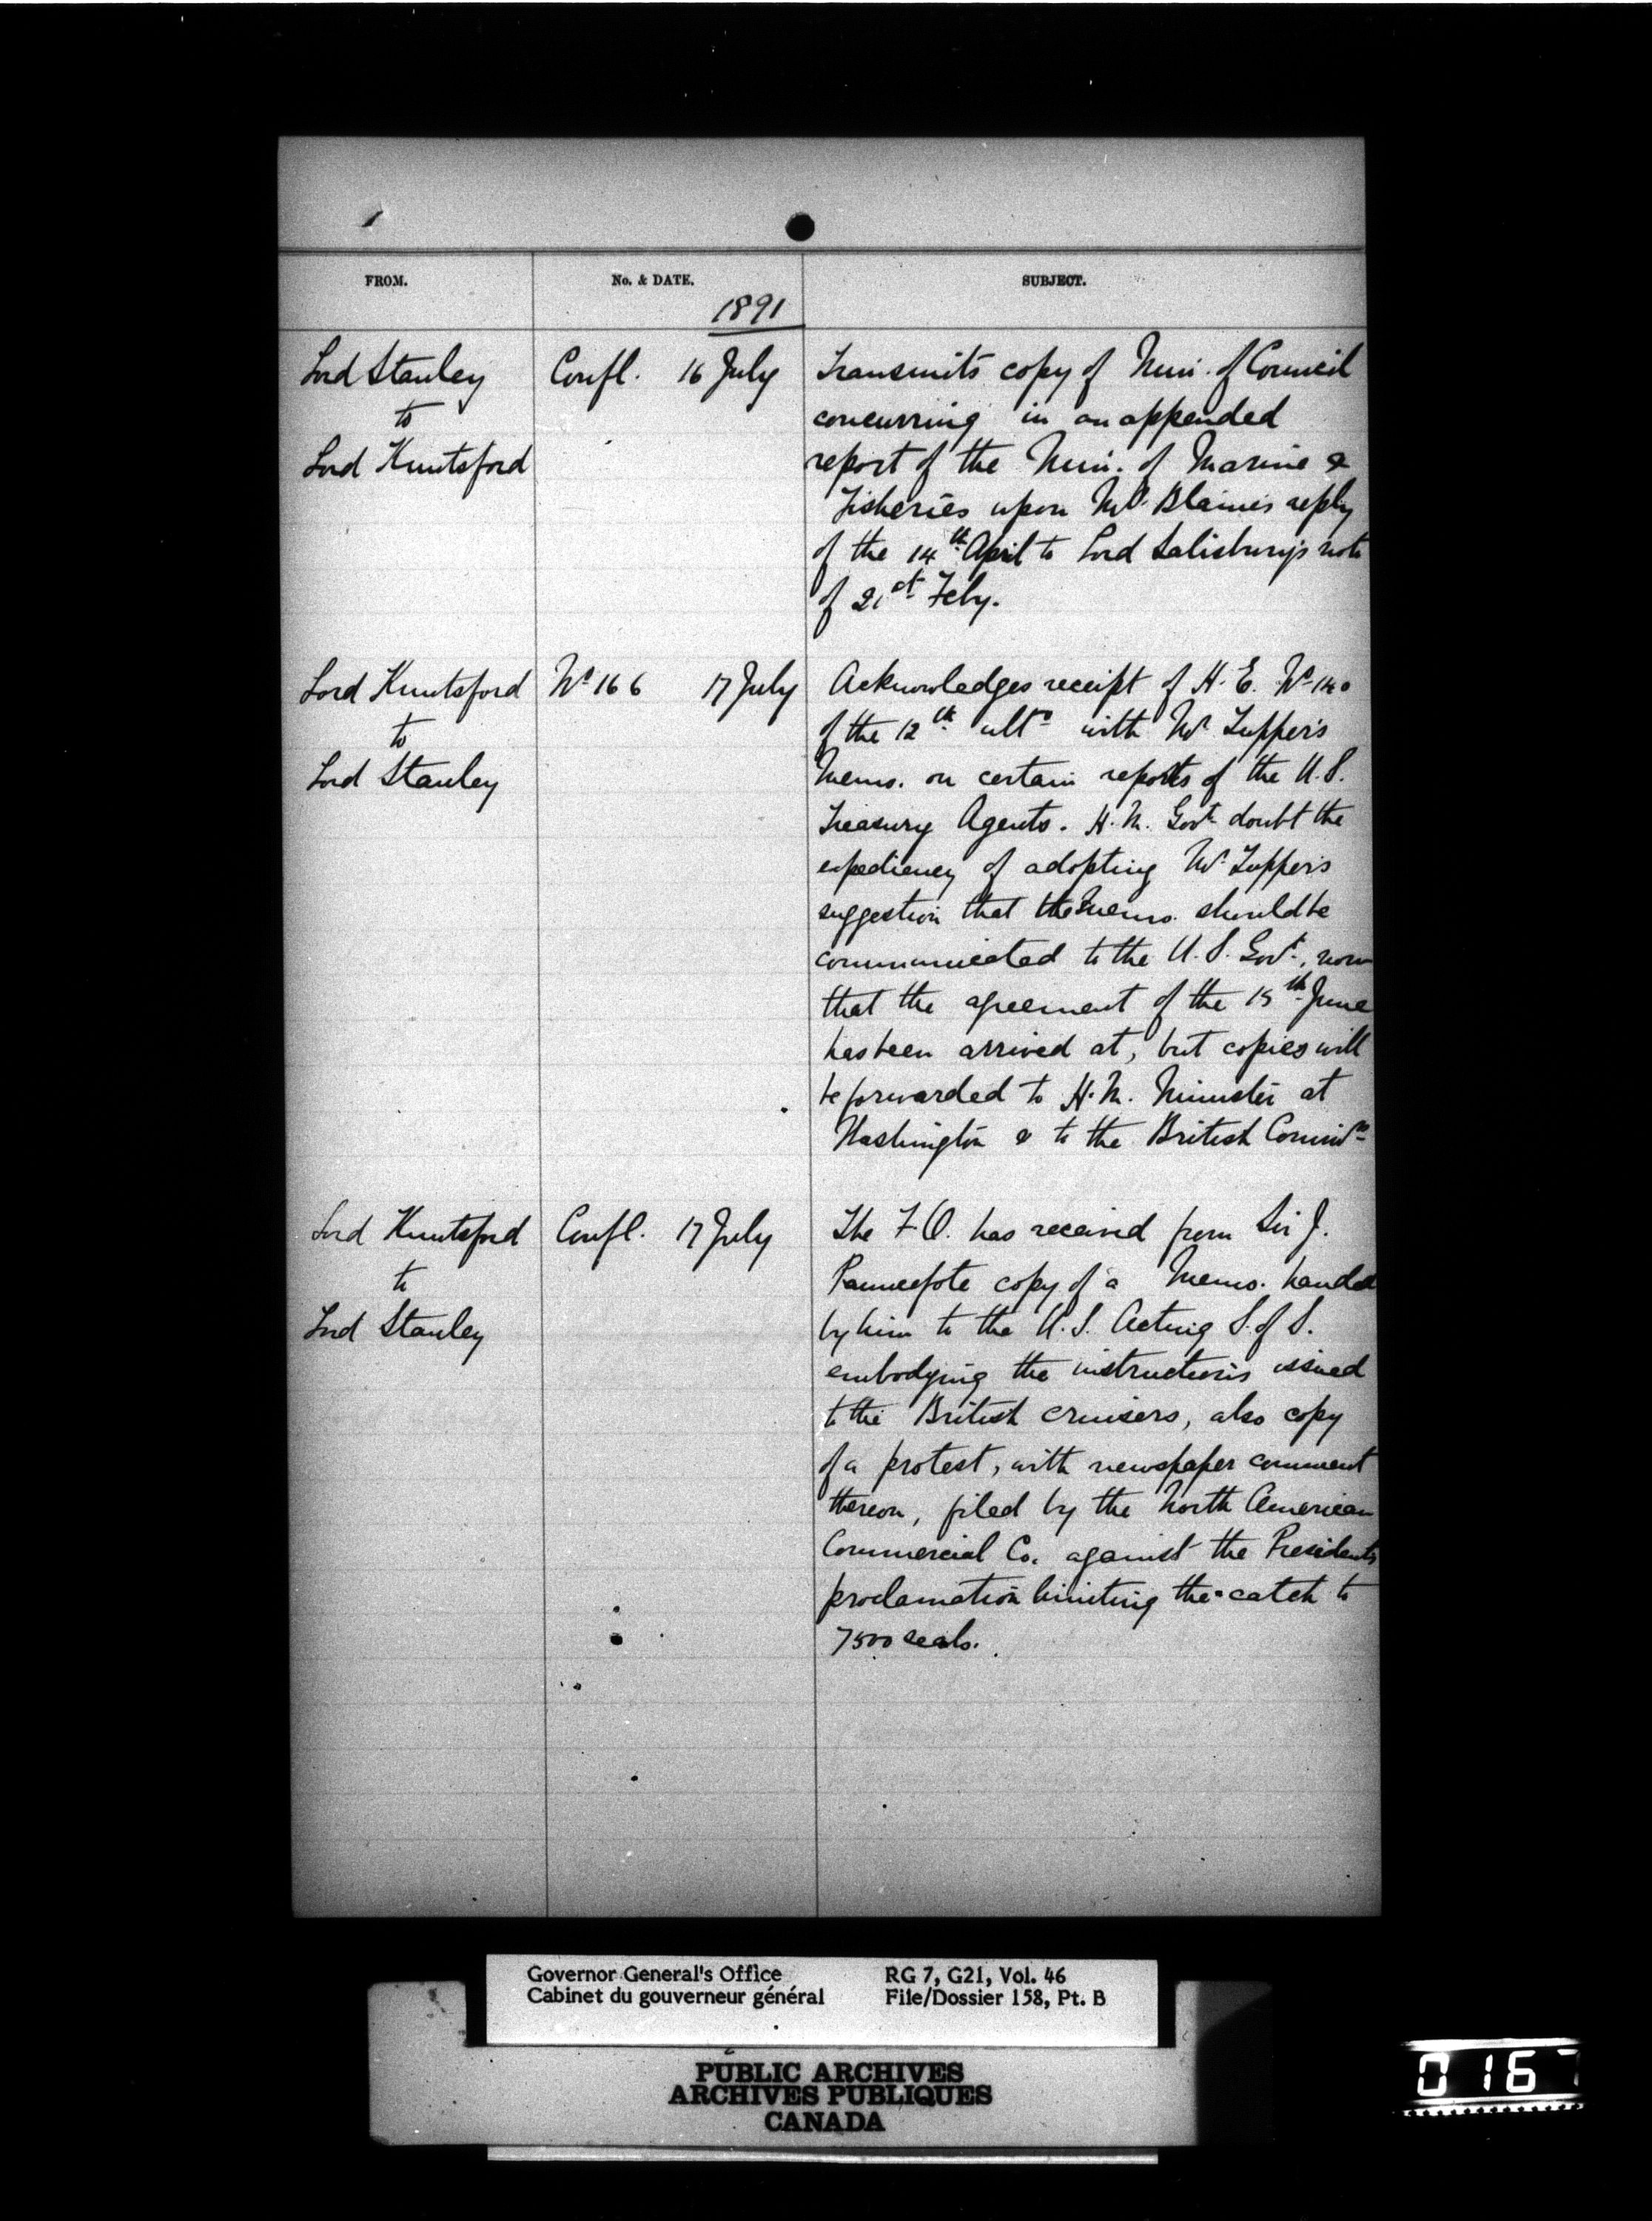 FROM. No. & DATE. SUBJECT.
1891
Lord Stanley Confl. 16 July Transmits copy of Min. of Council
to concurring in an appended
Lord Knutsford report of the Min. of Marine &
Fisheries upon Mr. Blaine's reply
of the 14th. April to Lord Salisbury's note
of 21st. Feby.
Lord Knutsford No 166 17 July Acknowledges receipt of H. E. No 140
to of the 12th. ulto with Mr Tupper's
Lord Stanley Memo. on certain reports of the U.S.
Treasury Agents. H.M. Govt. doubt the
expediency of adopting Mr Tupper's
suggestion that the Memo. should be
communicated to the U.S. Govt., now
that the agreement of the 15th. June
has been arrived at, but copies will
be forwarded to H.M. Minister at
Washington & to the British
Lord Knutsford Confl. 17 July The F.O. has received from Sir J.
to Pauncefote copy of a Memo. handed
Lord Stanley by him to the U.S. Acting S. of S.
embodying the instructions issued
to the British cruisers, also copy
of a protest, with newspaper comment
thereon, filed by the North American
Commercial Co. against the President's
proclamation limiting the catch to
7500 seals.
Governor General's Office RG 7, G21, Vol. 46
Cabinet du gouverneur général File/Dossier 158, Pt. B
PUBLIC ARCHIVES
ARCHIVES PUBLIQUES
CANADA
0167